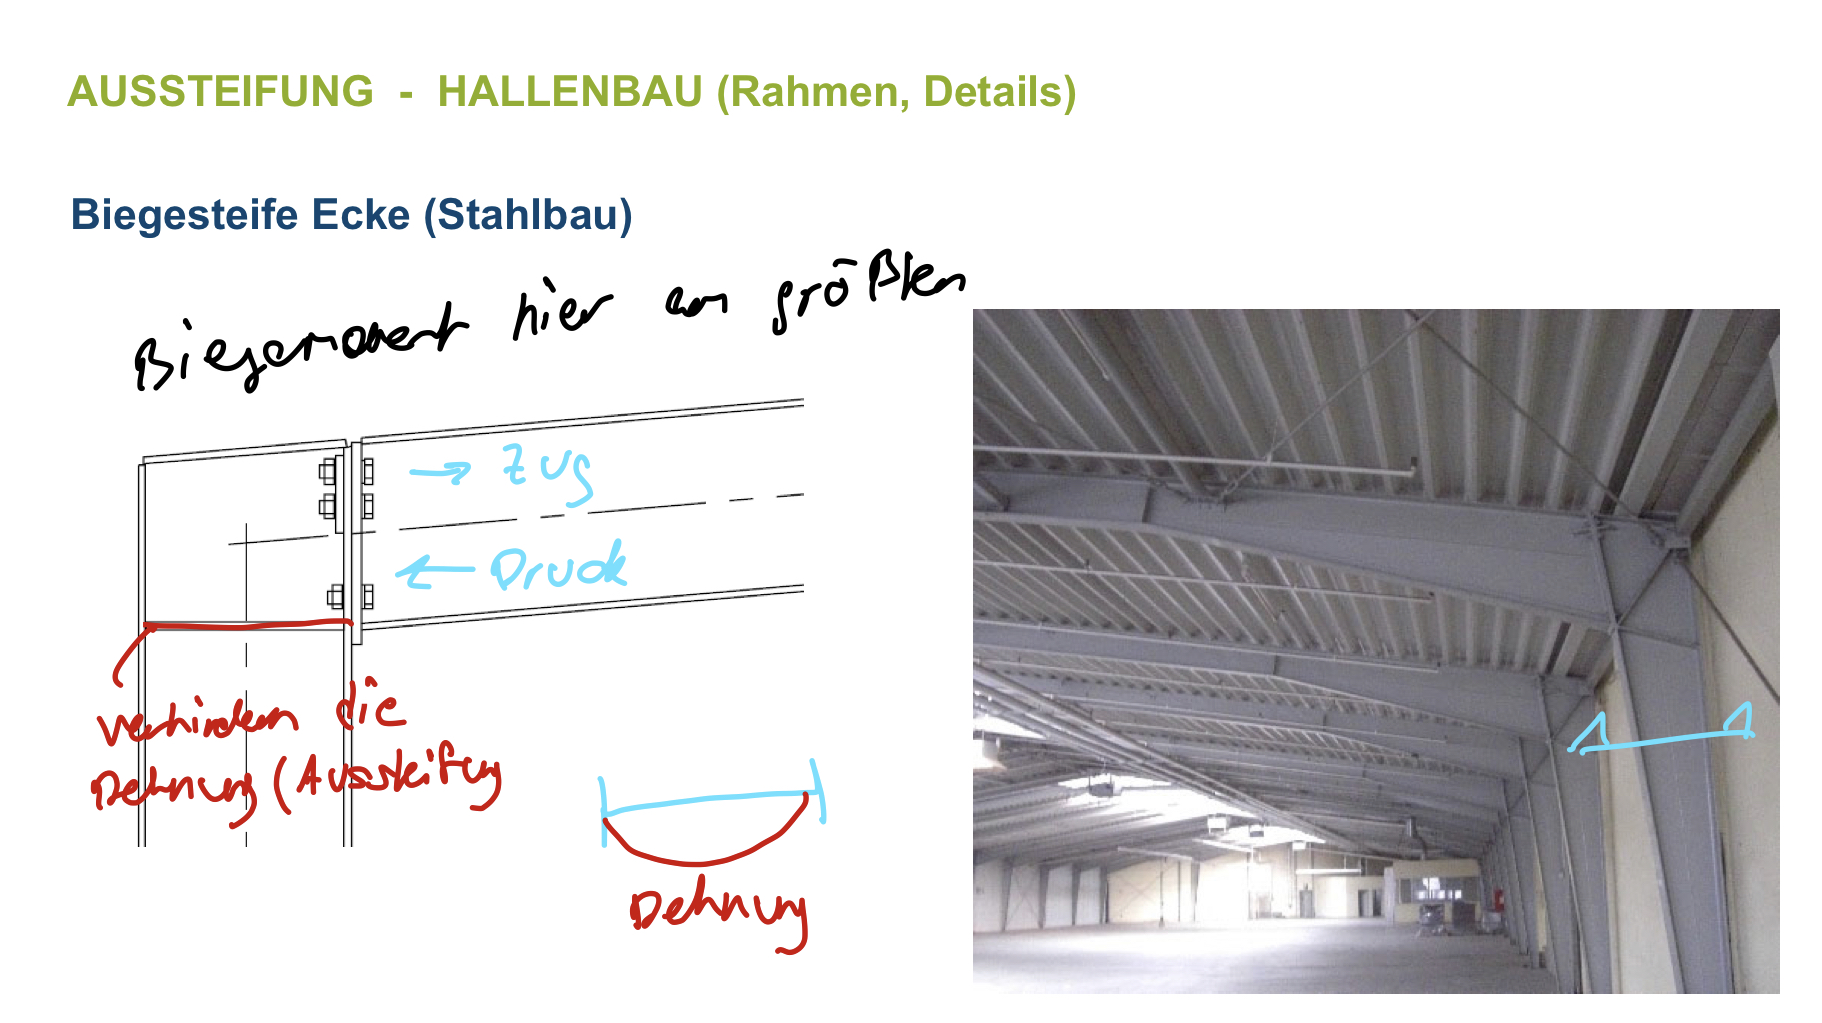 AUSSTEIFUNG - HALLENBAU (Rahmen, Details)
Biegesteife Ecke (Stahlbau)
Biegemoment hier am größten
Zug
Druck
verhindern die
Dehnung (Aussteifung
Dehnung